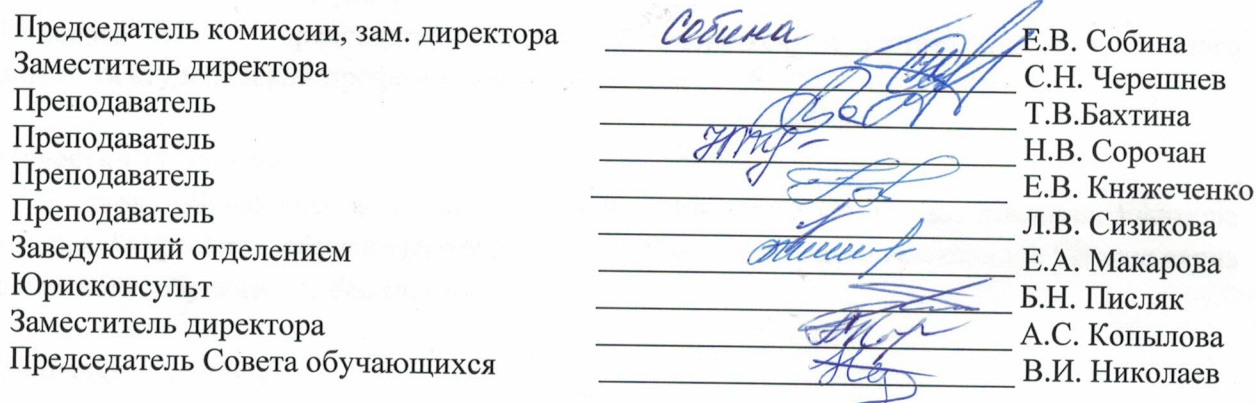 Председатель комиссии, зам. директора Собина Е.В. Собина
Заместитель директора С.Н. Черешнев
Преподаватель Т.В.Бахтина
Преподаватель Н.В. Сорочан
Преподаватель Е.В. Княжеченко
Преподаватель Л.В. Сизикова
Заведующий отделением Е.А. Макарова
Юрисконсульт Б.Н. Писляк
Заместитель директора А.С. Копылова
Председатель Совета обучающихся В.И. Николаев